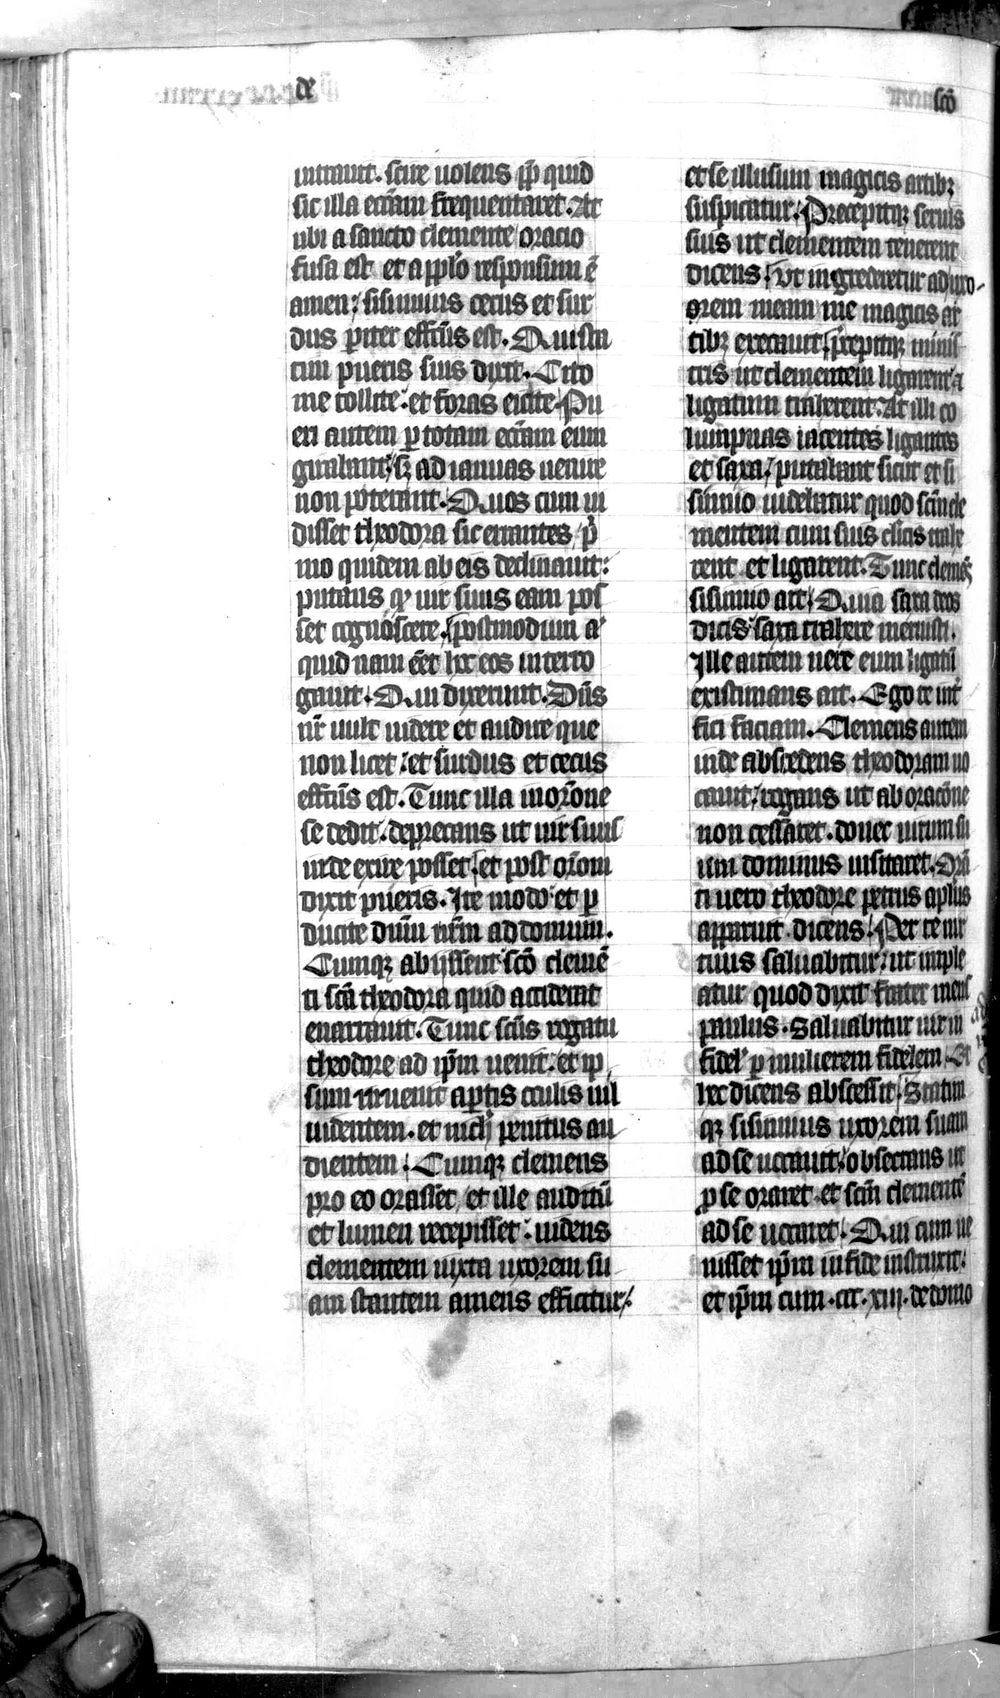 de
sco᷑
intrauit. scire uolens ꝓp̄ quid
sic illa ecc̄am frequentaret. At
ubi a sancto clemente oracio
fusa est et a pp̄lo responsum ē
amen: sisinnius cecus et sur
dus ꝑiter effc̄us est. Qui sta
tim pueris suis dixit. Cito
me tollite. et foras eicite. Pu
eri autem ꝑ totam ecc̄am eum
girabant, sꝫ ad ianuas uenire
non poterant. Quos cum ui
disset theodora sic errantes, pͥ
mo quidem ab eis declinauit:
putans qͩ uir suus eam pos
set cognoscere. postmodum a
quid nam eēt hec eos interro
gauit. Qui dixerunt. Dn̄s
nr̄ uult uidere et audire que
non licet. et surdus et cecus
effc̄us est. Tunc illa in or̄one
se dedit. deprecans ut uir suus
inde exire posset. et post or̄om
dixit pueris. Ite modo et ꝑ
ducite dn̄m nr̄m ad domum.
Cumqꝫ abijssent sc̄o clemē
ti sc̄a theodora quid acciderat
enarrauit. Tunc sc̄us rogatu
theodore ad ip̄m uenit. et ip
sum inuenit aꝑtis oculis nil
uidentem. et nichͥ penitus au
dientem. Cumqꝫ clemens
pro eo orasset, et ille auditū
et lumen recepisset. uidens
clementem iuxta uxorem su
am stantem amens efficitur,
et se illusum magicis artibꝫ
suspicatur. Precepitqꝫ seruis
suis ut clementem tenerent
dicens. Ut ingrederetur ad uxo-
orem meam me magicis ar
tibꝫ excecauit. p̄cepitqꝫ minis
tris ut clementem ligarent ⁊
ligatum traherent. At illi co
lumpnas iacentes ligantes
et saxa, putabant sicut et si
sinnio uidebatur quod sc̄m cle
mentem cum suis cl̄icis trahe
rent et ligarent. Tunc clemēs
sisinnio ait. Quia saxa deos
dicis. saxa trahere meruisti.
Ille autem uere eum ligatū
existimans ait. Ego te int̄
fici faciam. Clemens autem
inde abscedens theodoram ro
gauit, rogans ut ab orac̄one
non cessaret. donec uirum su
um dominus uisitaret. Orā
ti uero theodore petrus apl̄us
apparuit dicens. Per te uir
tuus saluabitur. ut imple
atur quod dixit frater meus
paulus. Saluabitur uir in
fidel' ꝑ mulierem fidelem. Et
hec dicens abscessit. Statim
qꝫ sisinnius uxorem suam
ad se uocauit. obsecrans ut
ꝓ se oraret. et sc̄m clementē
ad se uocaret. Qui cum ue
nisset ip̄m in fide instruxit.
et ip̄m cum .ccc. xiij. de domo